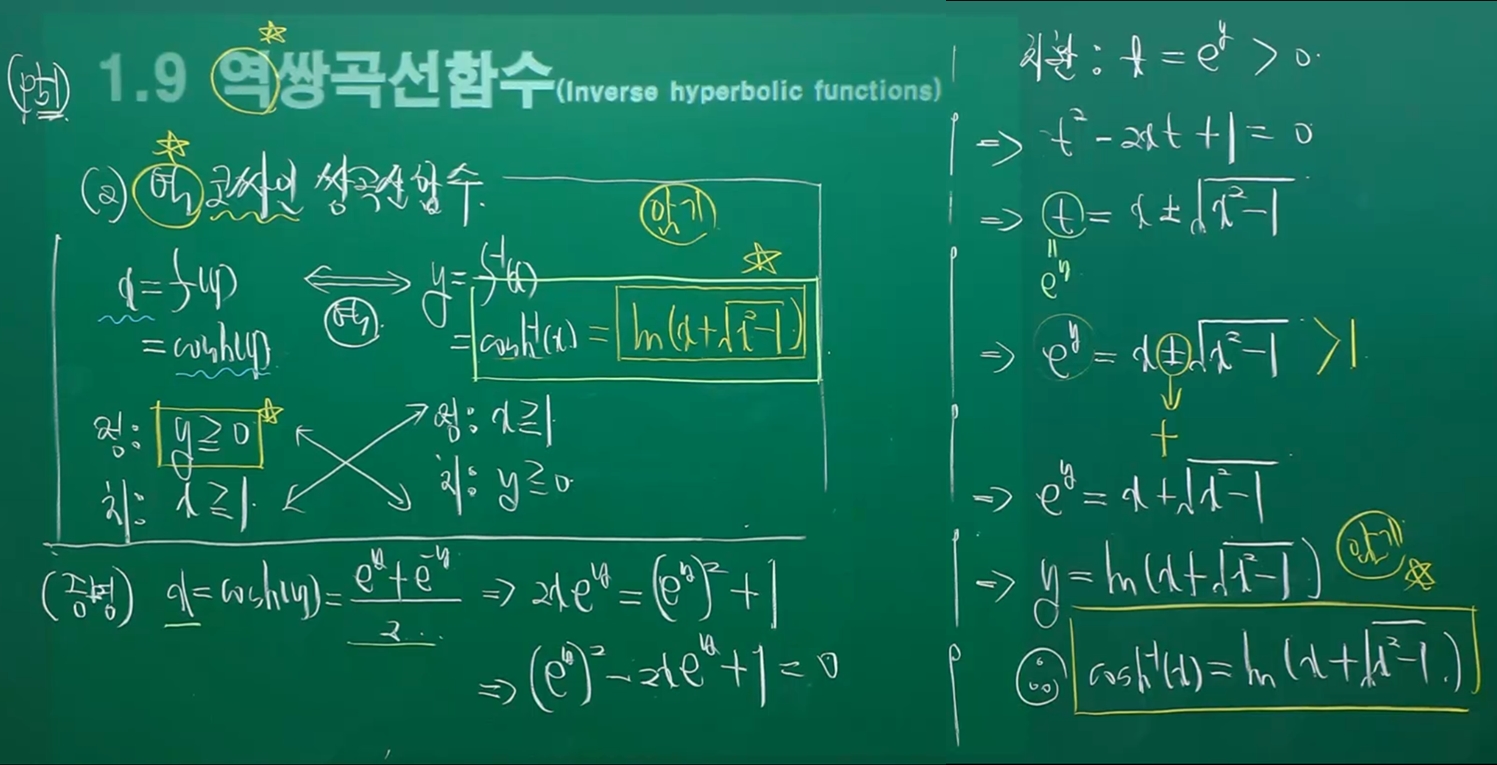 (p51) 1.9 역쌍곡선함수(Inverse hyperbolic functions)
(2) 역 코싸인 쌍곡선함수.
암기
x = f(y) ⟺ y = f⁻¹(x)
역
= cosh(y) = cosh⁻¹(x) = ln(x+√(x²-1))
정: y ≥ 0 정: x ≥ 1
치: x ≥ 1. 치: y ≥ 0.
(증명) x = cosh(y) = (e^y + e^-y)/2 ⇒ 2xe^y = (e^y)² + 1
⇒ (e^y)² - 2xe^y + 1 = 0
치환 : t = e^y > 0.
⇒ t² - 2xt + 1 = 0
⇒ t = x ± √(x²-1)
"
e^y
⇒ e^y = x ± √(x²-1) > 1
↓
+
⇒ e^y = x + √(x²-1)
⇒ y = ln(x+√(x²-1)) 암기
∴ cosh⁻¹(x) = ln(x+√(x²-1))